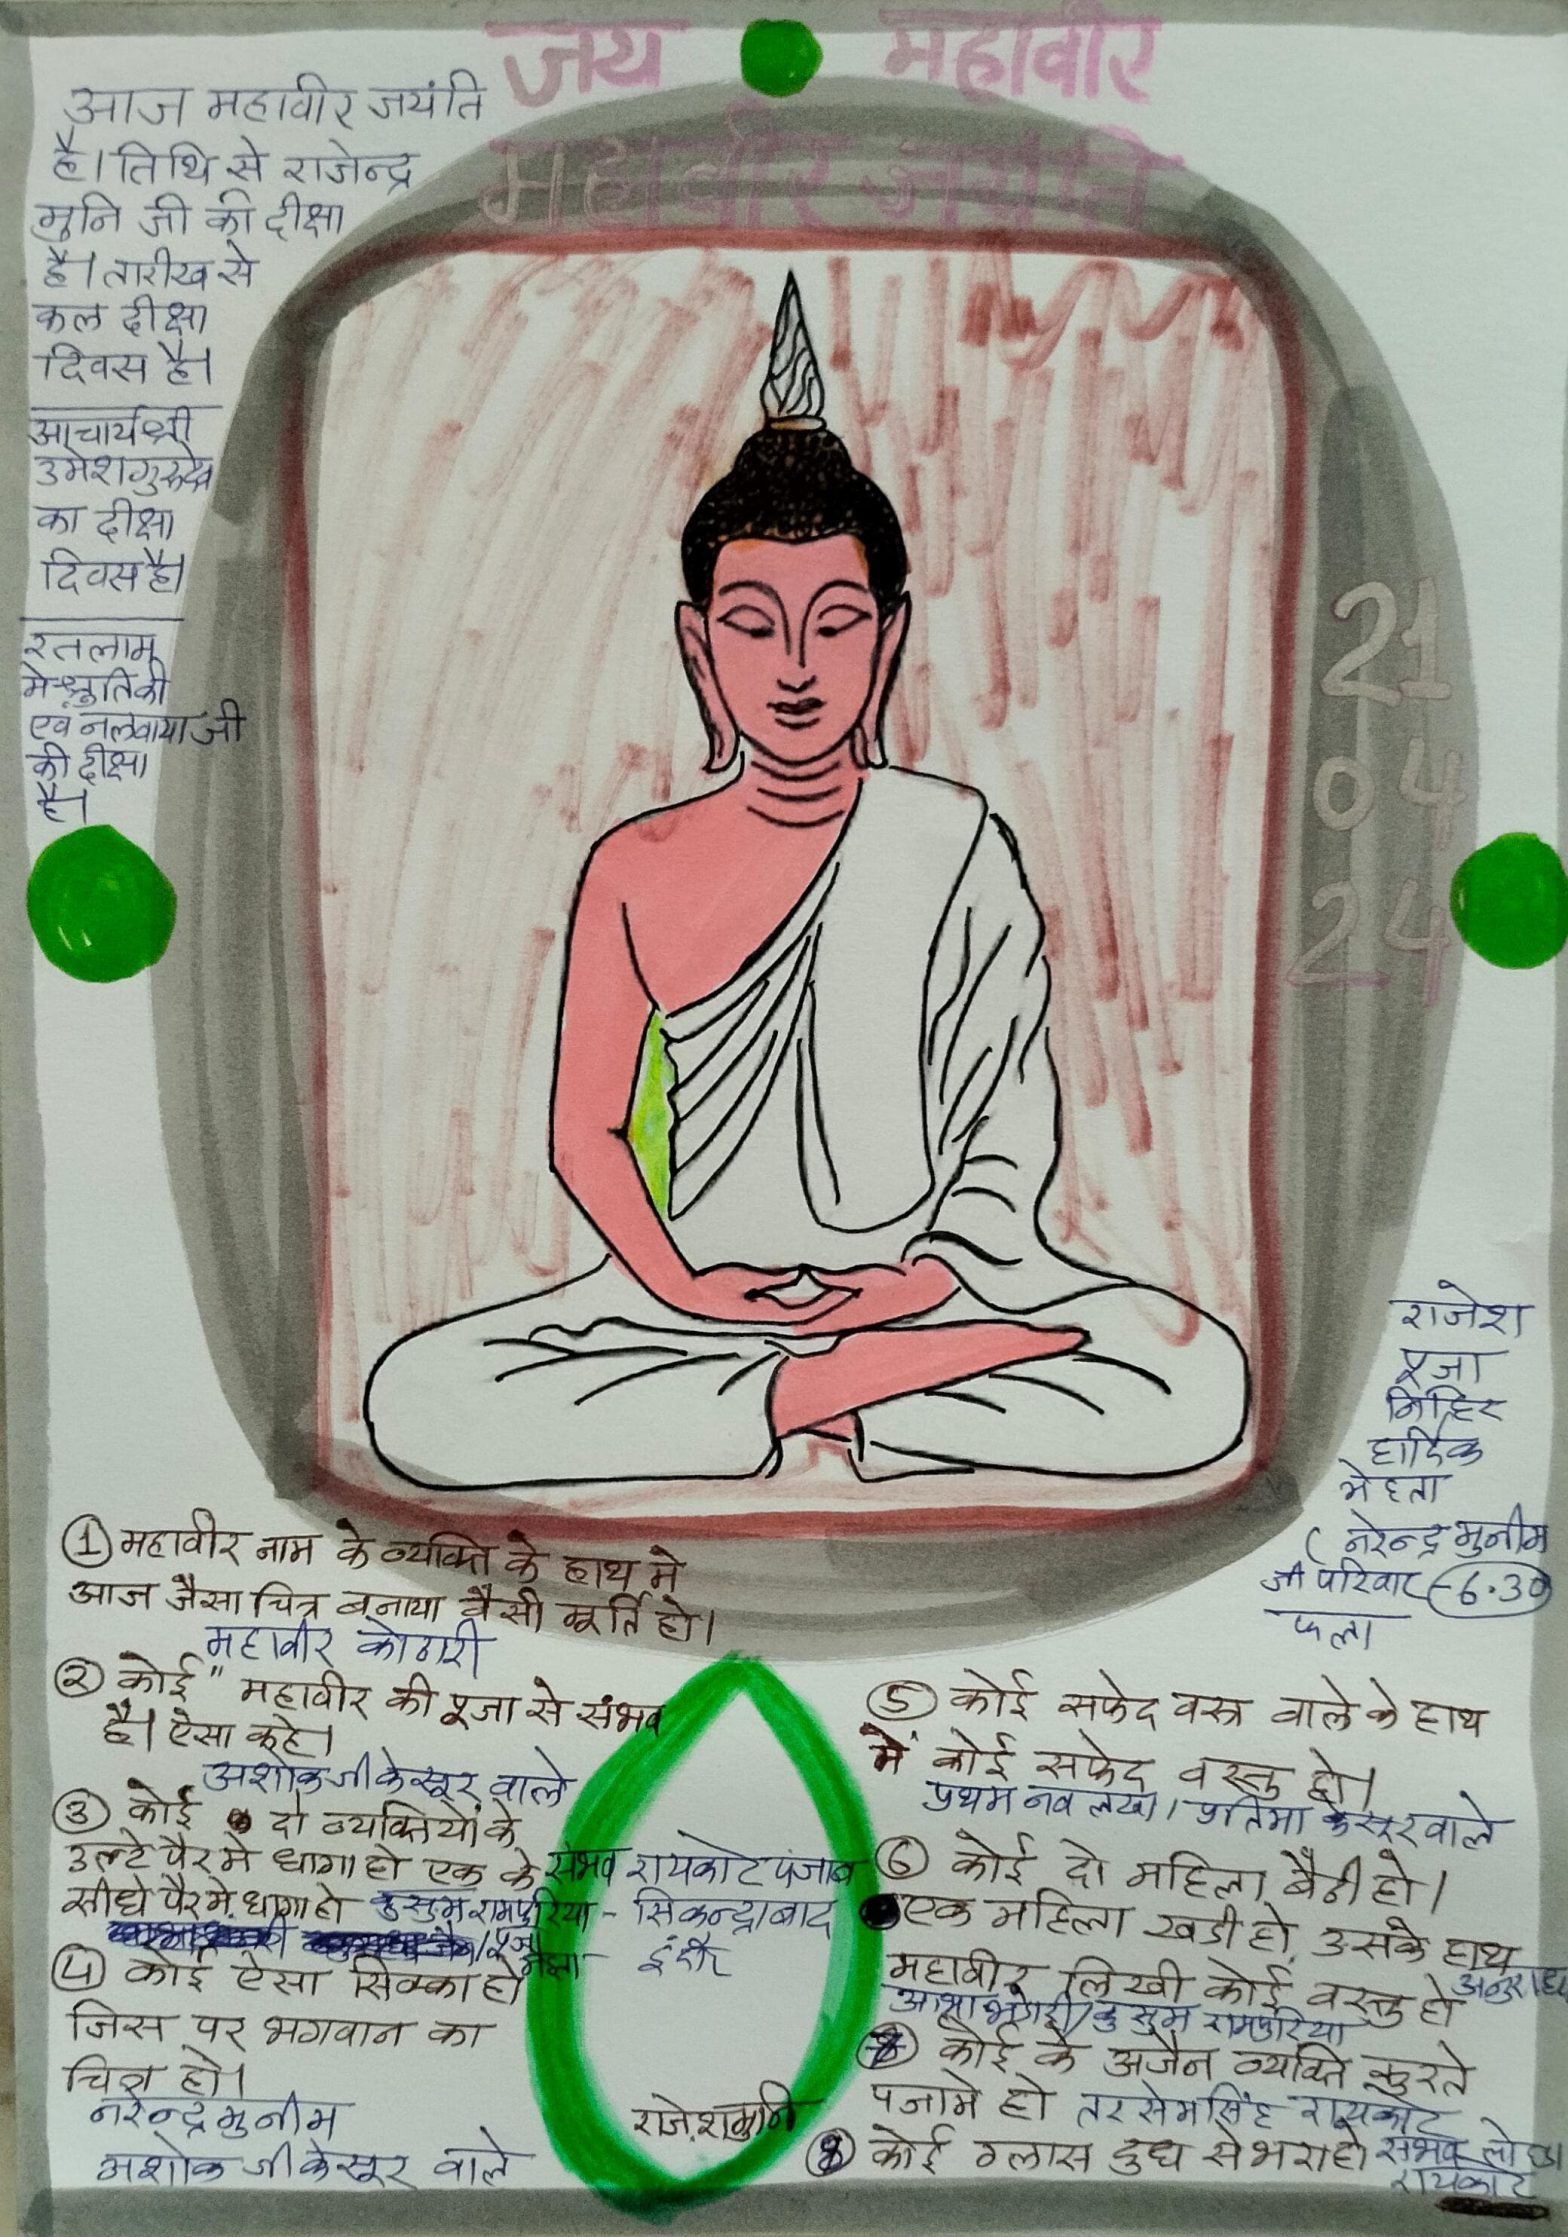 जय महावीर
महावीर जयंति
आज महावीर जयंति
है। तिथि से राजेन्द्र
मुनि जी की दीक्षा
है। तारीख से
कल दीक्षा
दिवस है।
आचार्य श्री
उमेश गुरुदेव
का दीक्षा
दिवस है।
रतलाम
में
एवं नलवाया जी
की दीक्षा
है।
21
04
24
राजेश
पूजा
मिहिर
हार्दिक
मेहता
( नरेन्द्र मुनीम
जी परिवार - 6.30
फला
① महावीर नाम के व्यक्ति के हाथ मे
आज जैसा चित्र बनाया वैसी मूर्ति हो।
महावीर कोठारी
② कोई " महावीर की पूजा से संभव
है। ऐसा कहे।
अशोक जी केसूर वाले
③ कोई दो व्यक्तियों के
उल्टे पैर मे धागा हो एक के संभव रायकोट पंजाब
सीधे पैर मे धागा हो कुसुम रामपुरिया - सिकन्द्राबाद
पूजा मेहता - इंदौर
④ कोई ऐसा सिक्का हो
जिस पर भगवान का
चित्र हो।
नरेन्द्र मुनीम
अशोक जी केसूर वाले
राजेश मुनि
⑤ कोई सफेद वस्त्र वाले के हाथ
में कोई सफेद वस्तु हो।
प्रथम नवलखा। प्रतिमा केसूर वाले
⑥ कोई दो महिला बैठी हो।
एक महिला खडी हो उसके हाथ
महावीर लिखी कोई वस्तु हो
कुसुम रामपुरिया
⑦ कोई के अजैन व्यक्ति कुरते
पजामे हो तरसेमसिंह रायकोट
⑧ कोई ग्लास दुध से भरा हो संभव लोढा
रायकोट